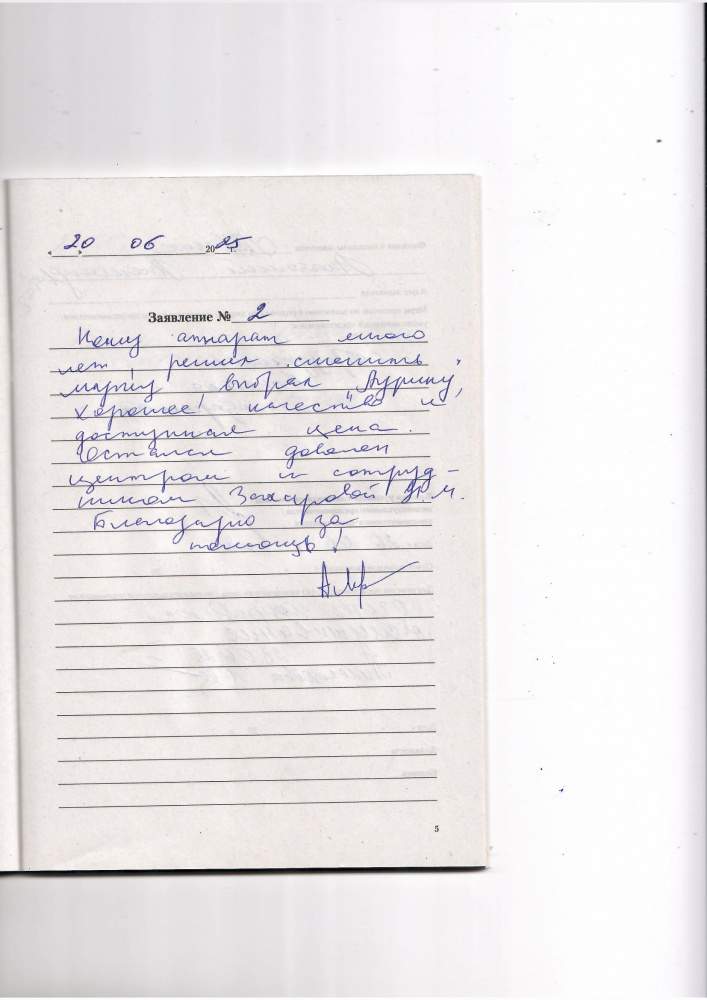 «20» 06 2025
Заявление № 2
Ношу аппарат много
лет, решил сменить
марку, выбрал "Аурику",
хорошее качество и
доступная цена.
Остался доволен
центром и сотруд-
ником Захаровой М.
Благодарю за
помощь!
5